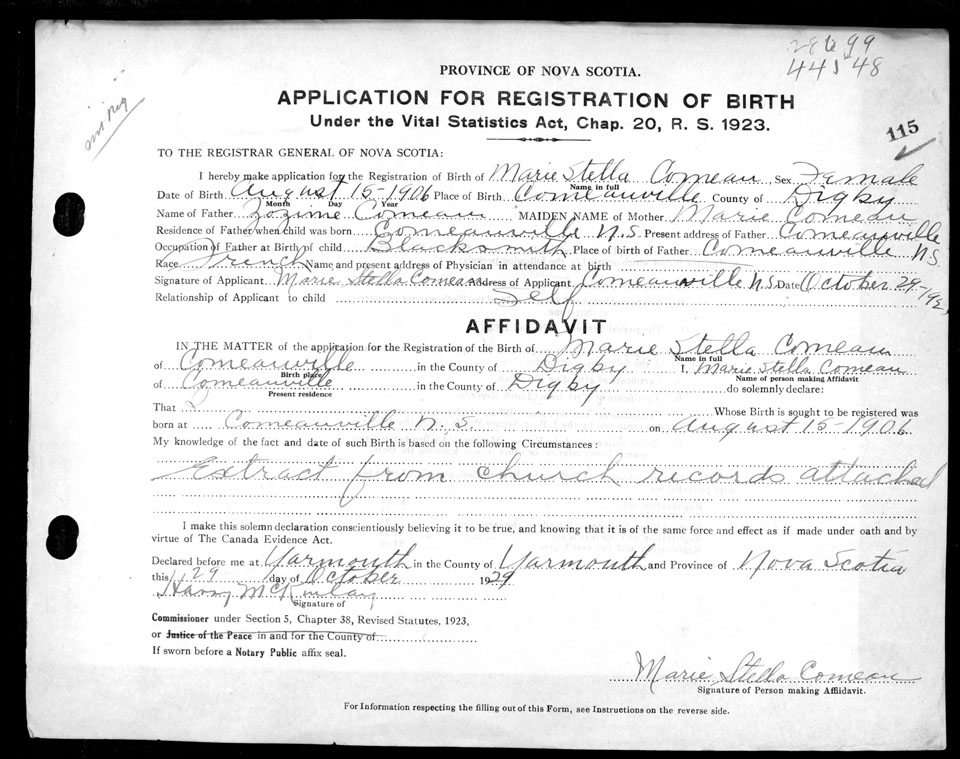 28 99
441 48
PROVINCE OF NOVA SCOTIA.
APPLICATION FOR REGISTRATION OF BIRTH
Under the Vital Statistics Act, Chap. 20, R. S. 1923.
115
TO THE REGISTRAR GENERAL OF NOVA SCOTIA:
I hereby make application for the Registration of Birth of Marie Stella Comeau Sex Female
Name in full
Date of Birth August 15-1906 Place of Birth Comeauville County of Digby
Month Day Year
Name of Father Zozime Comeau MAIDEN NAME of Mother Marie Comeau
Residence of Father when child was born Comeauville N.S. Present address of Father Comeauville
Occupation of Father at Birth of child Blacksmith Place of birth of Father Comeauville NS
Race French Name and present address of Physician in attendance at birth
Signature of Applicant Marie Stella Comeau Address of Applicant Comeauville N.S. Date October 29-192
Relationship of Applicant to child Self
AFFIDAVIT
IN THE MATTER of the application for the Registration of the Birth of Marie Stella Comeau
Name in full
of Comeauville in the County of Digby I, Marie Stella Comeau
Birth place Name of person making Affidavit
of Comeauville in the County of Digby do solemnly declare:
Present residence
That I Whose Birth is sought to be registered was
born at Comeauville N.S. on August 15-1906
My knowledge of the fact and date of such Birth is based on the following Circumstances:
Extract from church records attached
I make this solemn declaration conscientiously believing it to be true, and knowing that it is of the same force and effect as if made under oath and by
virtue of The Canada Evidence Act.
Declared before me at Yarmouth in the County of Yarmouth and Province of Nova Scotia
this 29 day of October 1929
Harry McKinlay
Signature of
Commissioner under Section 5, Chapter 38, Revised Statutes, 1923,
or Justice of the Peace in and for the County of
If sworn before a Notary Public affix seal.
Marie Stella Comeau
Signature of Person making Affidavit.
For Information respecting the filling out of this Form, see Instructions on the reverse side.